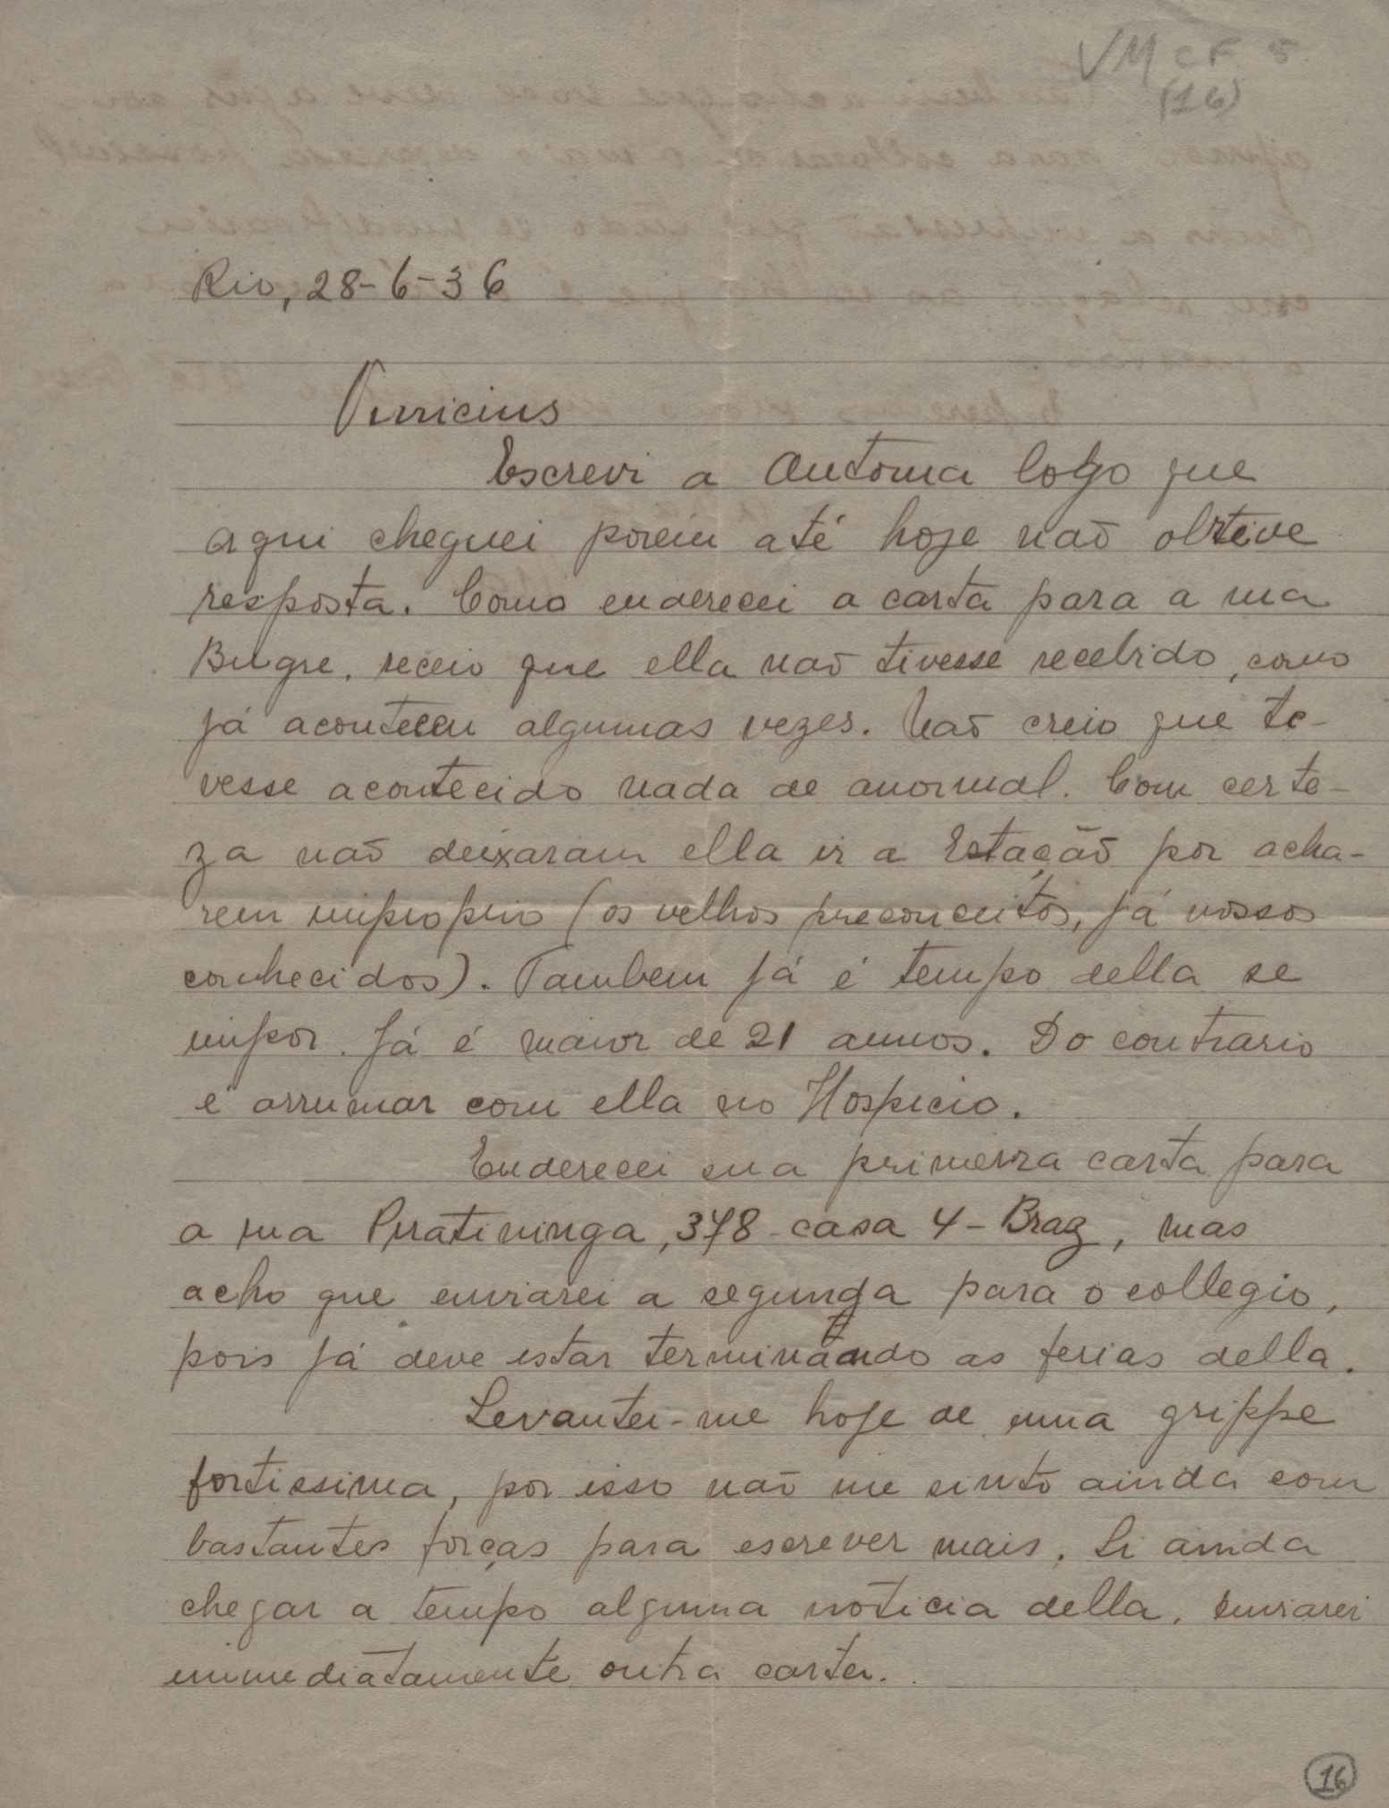 VM CF 5
(16)
Rio, 28-6-36
Vinicius
Escrevi a Antonia logo que
aqui cheguei porém até hoje não obtive
resposta. Como enderecei a carta para a rua
Bugre, receio que ella não tivesse recebido, como
já aconteceu algumas vezes. Não creio que te-
vesse acontecido nada de anormal. Com certe-
za não deixaram ella ir a Estação por acha-
rem improprio (os velhos preconceitos, já nossos
conhecidos). Tambem já é tempo della se
impor. Já é maior de 21 annos. Do contrario
é arrumar com ella no Hospicio.
Enderecei sua primeira carta para
a rua Piratininga, 378 - casa 4 - Braz, mas
acho que enviarei a segunda para o collegio,
pois já deve estar terminando as ferias della.
Levantei-me hoje de uma grippe
fortissima, por isso não me sinto ainda com
bastantes forças para escrever mais. Si ainda
chegar a tempo alguma noticia della, enviarei
immediatamente outra carta.
16